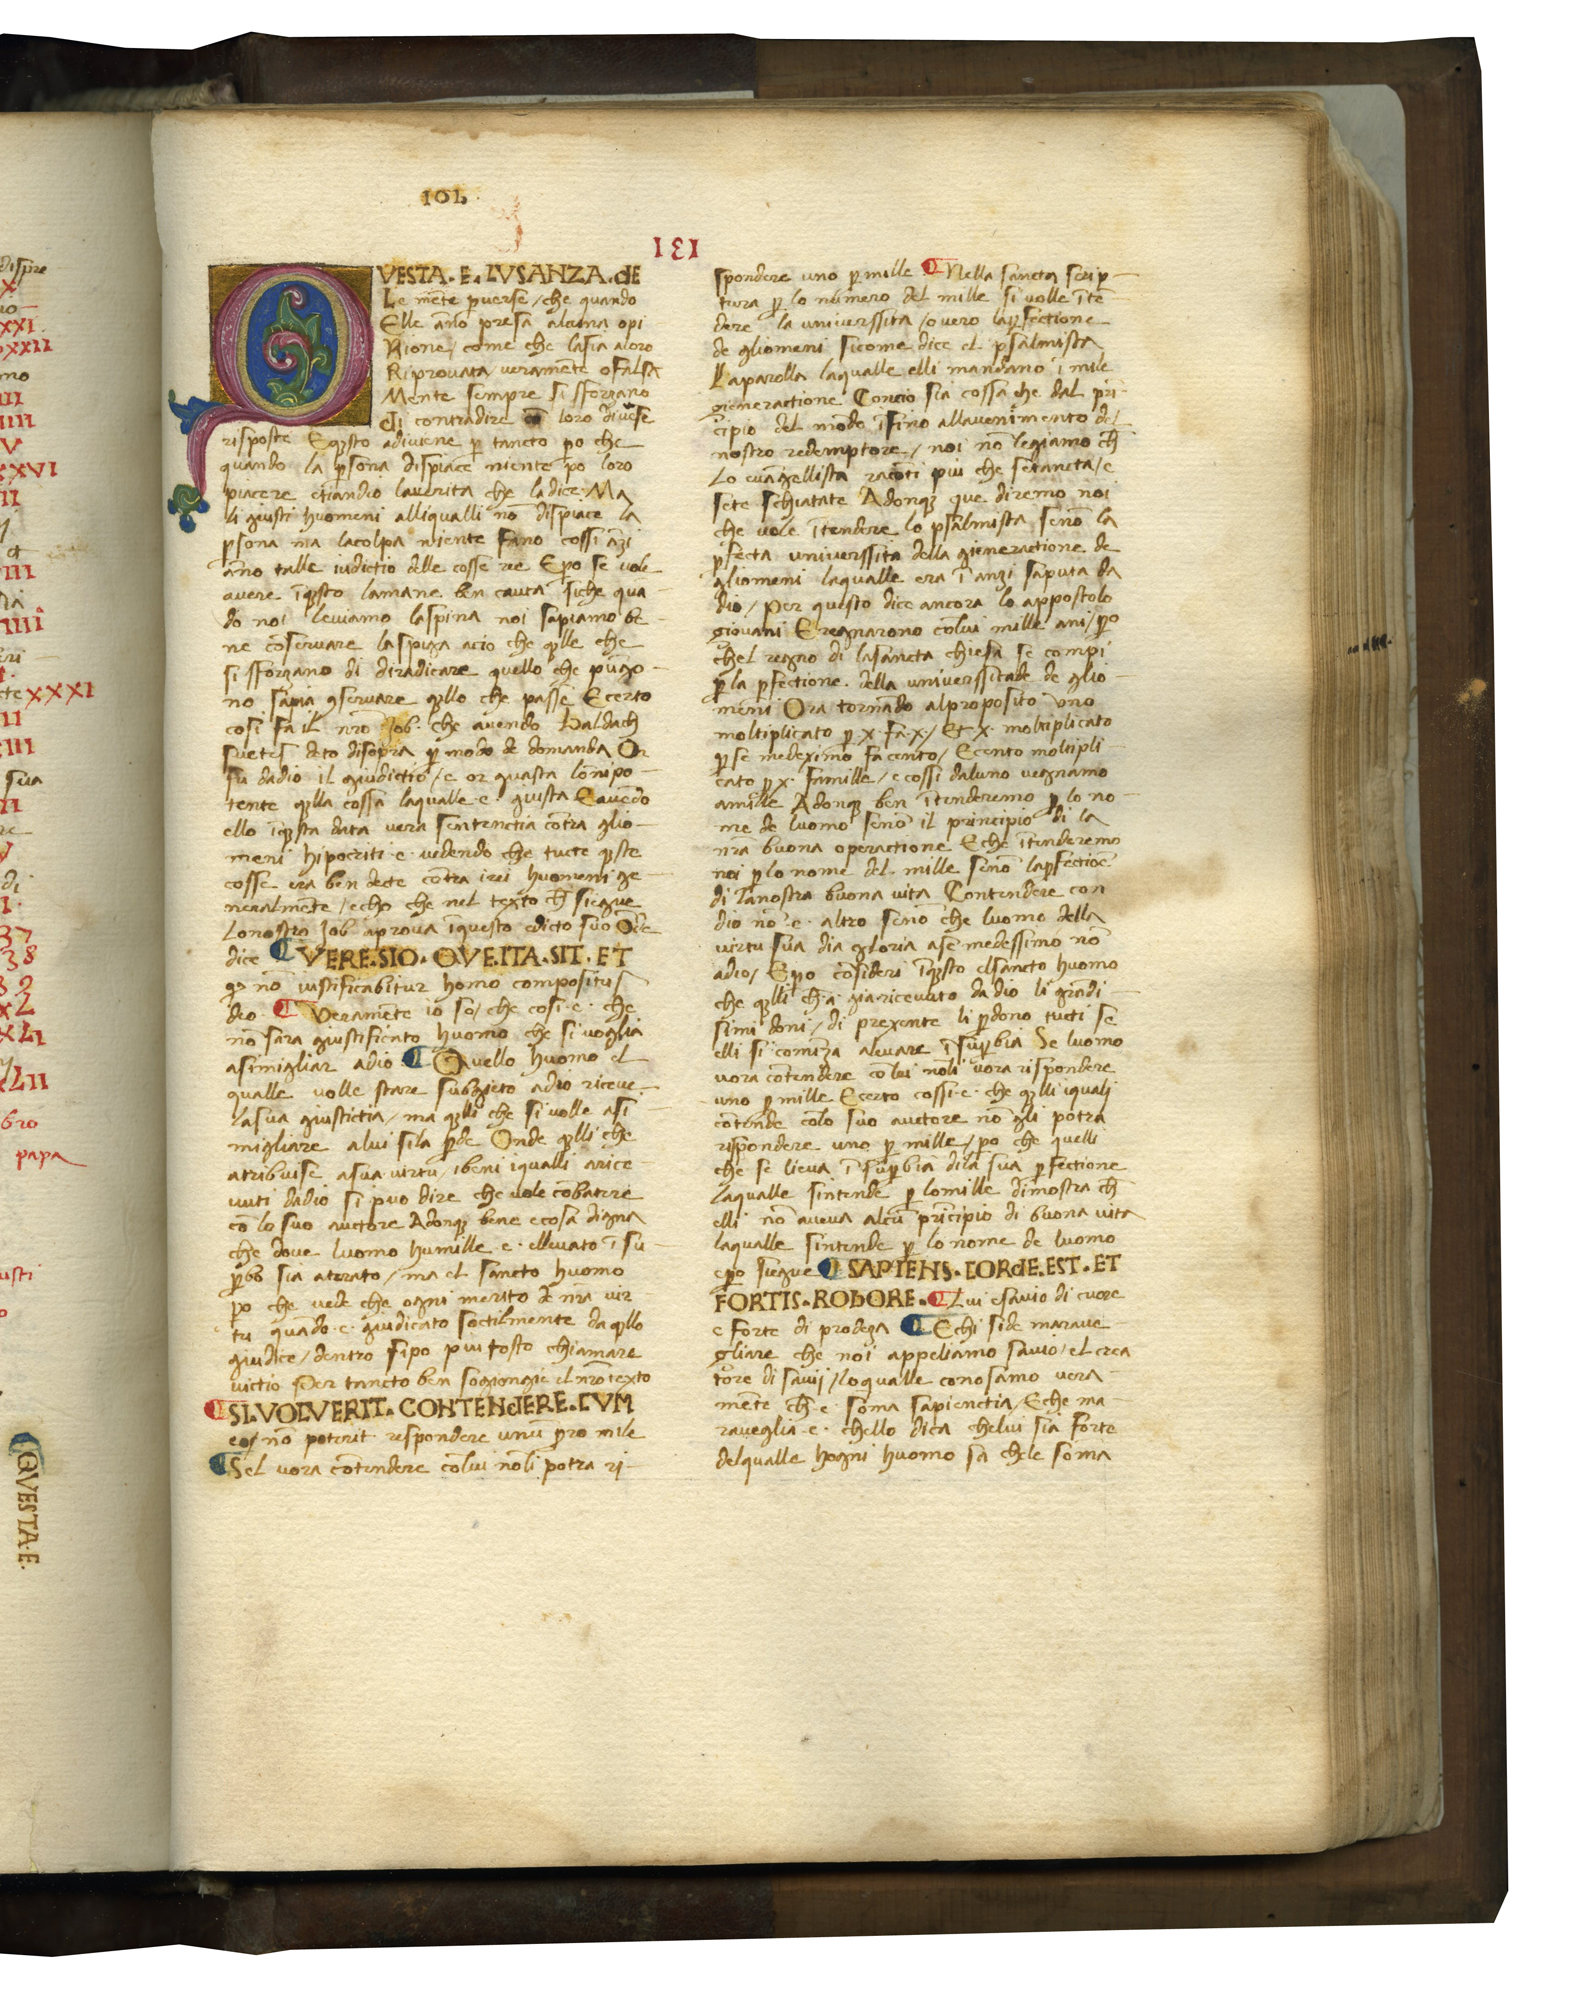 101
131
QVESTA·E·LVSANZA·dE
Le mēte pverse / che quando
Elle āno presa alcuna opi
Nione / come che lasia aloro
Riprovata veramēte o falsa
Mente sempre si sforzano
di contradire cū loro divse
risposte Eqsto adiviene p tancto po che
quando la psona dispiace niente po loro
piacere etiandio laverita che ladice Ma
li giusti huomeni alliqualli nō dispiace la
psona ma lacolpa niente fano cossi āzi
āno talle iudictio delle cosse ree Epo se vole
avere īqsto lamane ben cauta siche quā
do noi leviamo laspina noi sapiamo be
ne cōservare laspiga acio che qlle che
si sforzano di diradicare quello che pūgo
no sapia 9servare qllo che passe Ecerto
cosi fa il nro Job· che avendo Baldach
suetes deto disopra p modo de domanda Or
fu dadio il giudictio / e or guasta lōnipo
tente qlla cossa laqualle e· giusta Eavēdo
ello īqsta data vera sentenctia cōtra glio
meni hipocriti·e·vedendo che tucte qste
cosse era ben decte cōtra irei huomeni ge
neralmēte / echo che nel texto ch siegue
Lonostro Job aprova īquesto edicto suo Ode
dice VERE·SIO·QVE·ITA·SIT·ET
q nō iustificabitur homo compositus
deo· Veramēte io so / che cosi·e· che
nō sara giustificato huomo che si voglia
asimigliar adio Quello huomo el
qualle volle stare subgieto adio riceve
lasua giustictia / ma qlli che si volle asi
migliare a lui sila pde Onde qlli che
atribuise asua virtu / ibeni iqualli arice
vuti dadio si puo dire che vole cōbatere
cō lo suo auctore Adonq bene ecosa digna
che dove luomo humille·e·ellevato ī su
pbo sia aterato / ma el sancto huomo
po che vede che ogni merito de nra vir
tu quādo·e·giudicato soctilmente da qllo
giudice / dentro sipo piu tosto chiamare
victio Per tancto ben sogiongie el nro texto
SI·VOLVERIT·CONTENdERE·CVM
eo / nō poterit respondere unū pro mile
Sel vora cōtendere cōlui noli potra ri
spondere uno p mille Nella sancta scrip
tura p lo numero del mille si volle īte
dere la universsita / overo lapfectione
de gliomeni sicome dice el psalmista
Laparolla laqualle elli mandano ī mile
gieneractione Concio sia cossa che dal pri
cipio del mōdo īfino allavenimento del
nostro redemptore / noi nō legiamo ch
Lo evāgellista racōti piu che setancta / e
sete schiatate Adonq que diremo noi
che vole ītendere lo psalmista senō la
pfecta universsita della gieneractione de
gliomeni laqualle era ī anzi saputa da
dio / Per questo dice ancora lo appostolo
giovani Eregnarono cōlui mille ani / po
chel regno di lasancta chiesa se compi
p la pfectione· della universsitade de glio
meni Ora tornādo alproposito Uno
moltiplicato p x· fa·x· / Et x· moltiplicato
p se medeximo fa cento / Ecento moltipli
cato p x· fa mille / e cossi daluno vegnamo
amille Adonq ben ītenderemo p lo no
me de luomo senō il principio di la
nra buona operactione Eche ītenderemo
noi plo nome del· mille senō lapfectiōe
di lanostra buona vita Contendere con
dio nō·e· altro senō che luomo della
virtu sua dia gloria ase medessimo nō
adio / Epo cōsideri īqsto elsancto huomo
che qlli ch·a·gia ricevuto da dio li grādi
simi doni / di prexente li pdono tucti se
elli si comīza alevare ī supbia Se luomo
vora cōtendere cōlui noli vora rispondere
uno p mille Ecerto cossi·e· che qlli iquali
cōtende colo suo auctore nō gli potra
rispondere uno p mille / po che quelli
che se lieva ī supbia dila sua pfectione
laqualle sintende p lomille dimostra ch
elli nō aveva alcū prīcipio di buona vita
laqualle sintende p lo nome de luomo
epo siegue SAPIENS·CORdE·EST·ET
FORTIS·ROBORE· Lui esavio di cuore
e forte di prodeza Echi side marave
gliare che noi appellamo savio / el crea
tore di savij / loqualle conosamo vera
mēte ch·e·soma sapienctia / Eche ma
raveglia·e· chello dica chelui sia forte
delqualle hogni huomo sa chele soma
QVESTA·E·